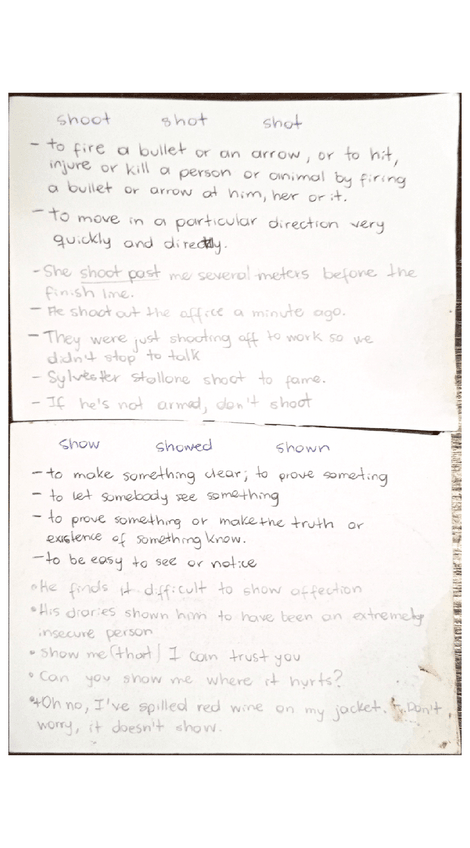 shoot shot shot
- to fire a bullet or an arrow, or to hit,
injure or kill a person or animal by firing
a bullet or arrow at him, her or it.
- to move in a particular direction very
quickly and directly.
- She shoot past me several meters before the
finish line.
- He shoot out the office a minute ago.
- They were just shooting off to work so we
didn't stop to talk
- Sylvester Stallone shoot to fame.
- If he's not armed, don't shoot
show showed shown
- to make something clear; to prove someting
- to let somebody see something
- to prove something or make the truth or
existence of something know.
- to be easy to see or notice
• He finds it difficult to show affection
• His diaries shown him to have been an extremely
insecure person
• show me (that) I can trust you
• Can you show me where it hurts?
• +Oh no, I've spilled red wine on my jacket. +. Don't
worry, it doesn't show.